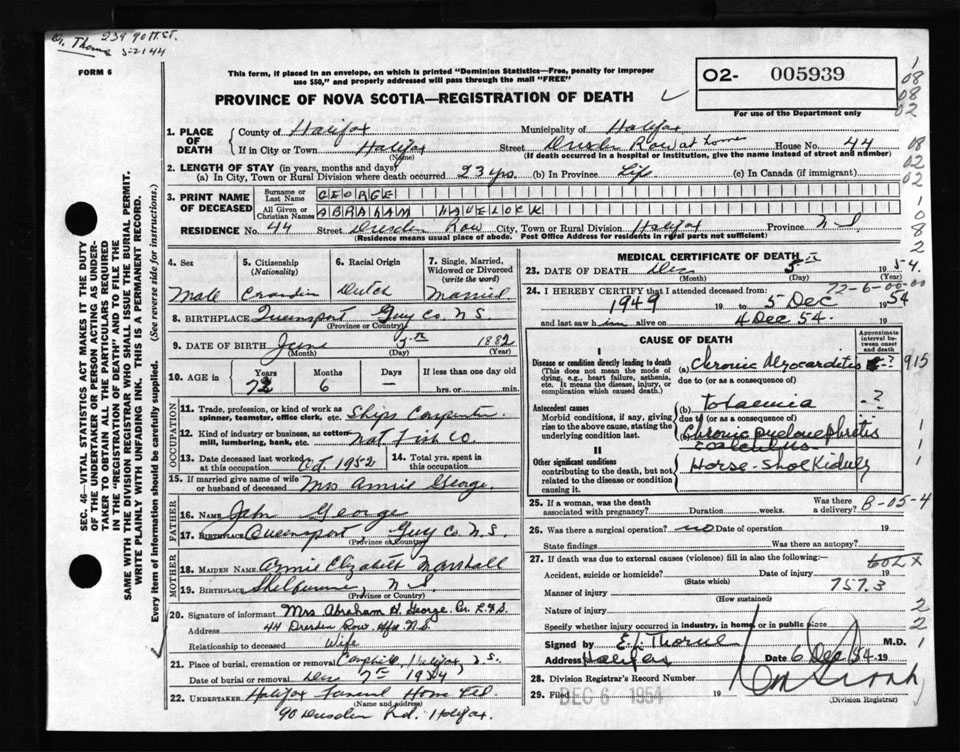 Dr. Thorne 239 Gott. St.
5-2144
FORM 6
This form, if placed in an envelope, on which is printed "Dominion Statistics—Free, penalty for improper
use $50," and properly addressed will pass through the mail "FREE"
PROVINCE OF NOVA SCOTIA—REGISTRATION OF DEATH
O2- 005939
For use of the Department only
1
08
08
02
08
02
02
1
0
8
2
1. PLACE OF DEATH
County of Halifax Municipality of Halifax
If in City or Town Halifax Street Dresden Row at home House No. 44
(Name) (If death occurred in a hospital or institution, give the name instead of street and number)
2. LENGTH OF STAY (in years, months and days)
(a) In City, Town or Rural Division where death occurred 23 yrs. (b) In Province Life (c) In Canada (if immigrant)
3. PRINT NAME OF DECEASED
Surname or Last Name GEORGE
All Given or Christian Names ABRAHAM HAVELOCK
RESIDENCE No. 44 Street Dresden Row City, Town or Rural Division Halifax Province N S
(Residence means usual place of abode. Post Office Address for residents in rural parts not sufficient)
4. Sex
Male
5. Citizenship (Nationality)
Canadian
6. Racial Origin
Dutch
7. Single, Married, Widowed or Divorced (write the word)
Married
8. BIRTHPLACE Queensport Guy Co. N S.
(Province or Country)
9. DATE OF BIRTH June 5th 1882
(Month) (Day) (Year)
10. AGE in Years Months Days If less than one day old
72 6 — hrs. or min.
OCCUPATION
11. Trade, profession, or kind of work as spinner, teamster, office clerk, etc. Ships Carpenter
12. Kind of industry or business, as cotton mill, lumbering, bank, etc. Nat Fish Co.
13. Date deceased last worked at this occupation Oct. 1952 14. Total yrs. spent in this occupation
15. If married give name of wife or husband of deceased Mrs Annie George.
FATHER
16. NAME George
17. BIRTHPLACE Queensport Guy Co N.S.
(Province or Country)
MOTHER
18. MAIDEN NAME Annie Elizabeth Marshall
19. BIRTHPLACE Shelburne, N S.
20. Signature of informant Mrs. Abraham H. George.
Address 44 Dresden Row, Hfx. N.S.
Relationship to deceased Wife
21. Place of burial, cremation or removal Halifax, N.S.
Date of burial or removal Dec 7th 1954
22. UNDERTAKER Halifax Funeral Home Ltd
(Name and address)
90 Dresden Rd. Halifax.
MEDICAL CERTIFICATE OF DEATH
23. DATE OF DEATH Dec 5th 1954.
(Month) (Day) (Year)
72-6-00-00
24. I HEREBY CERTIFY that I attended deceased from:
1949 19 to 5 Dec 1954
and last saw him alive on 4 Dec 54. 19
CAUSE OF DEATH
Approximate interval between onset and death
I
Disease or condition directly leading to death
(This does not mean the mode of dying, e.g., heart failure, asthenia, etc. It means the disease, injury, or complication which caused death.)
(a) Chronic Myocarditis ? 915
due to (or as a consequence of)
Antecedent causes
Morbid conditions, if any, giving rise to the above cause, stating the underlying condition last.
(b) toxaemia - ?
due to (or as a consequence of)
Chronic pyelonephritis 1
calculus 1
II
Other significant conditions
contributing to the death, but not related to the disease or condition causing it.
Horse-Shoe Kidney 1
25. If a woman, was the death associated with pregnancy? Duration weeks. Was there a delivery? B-05-4
26. Was there a surgical operation? no Date of operation 19
State findings Was there an autopsy?
27. If death was due to external causes (violence) fill in also the following:— 602X
Accident, suicide or homicide? Date of injury 19
(State which)
Manner of injury 757.3
(How sustained)
Nature of injury 2
Specify whether injury occurred in industry, in home, or in public place 2
Signed by E. Thorne M.D. 1
Address Halifax Date 6 Dec 54. 19
28. Division Registrar's Record Number
29. Filed DEC 6 1954 19
(Division Registrar)
SEC. 46—VITAL STATISTICS ACT MAKES IT THE DUTY
OF THE UNDERTAKER OR PERSON ACTING AS UNDER-
TAKER TO OBTAIN ALL THE PARTICULARS REQUIRED
IN THE "REGISTRATION OF DEATH" AND TO FILE THE
SAME WITH THE DIVISION REGISTRAR WHO SHALL ISSUE THE BURIAL PERMIT.
WRITE PLAINLY WITH UNFADING INK. THIS IS A PERMANENT RECORD.
Every item of information should be carefully supplied. (See reverse side for instructions.)